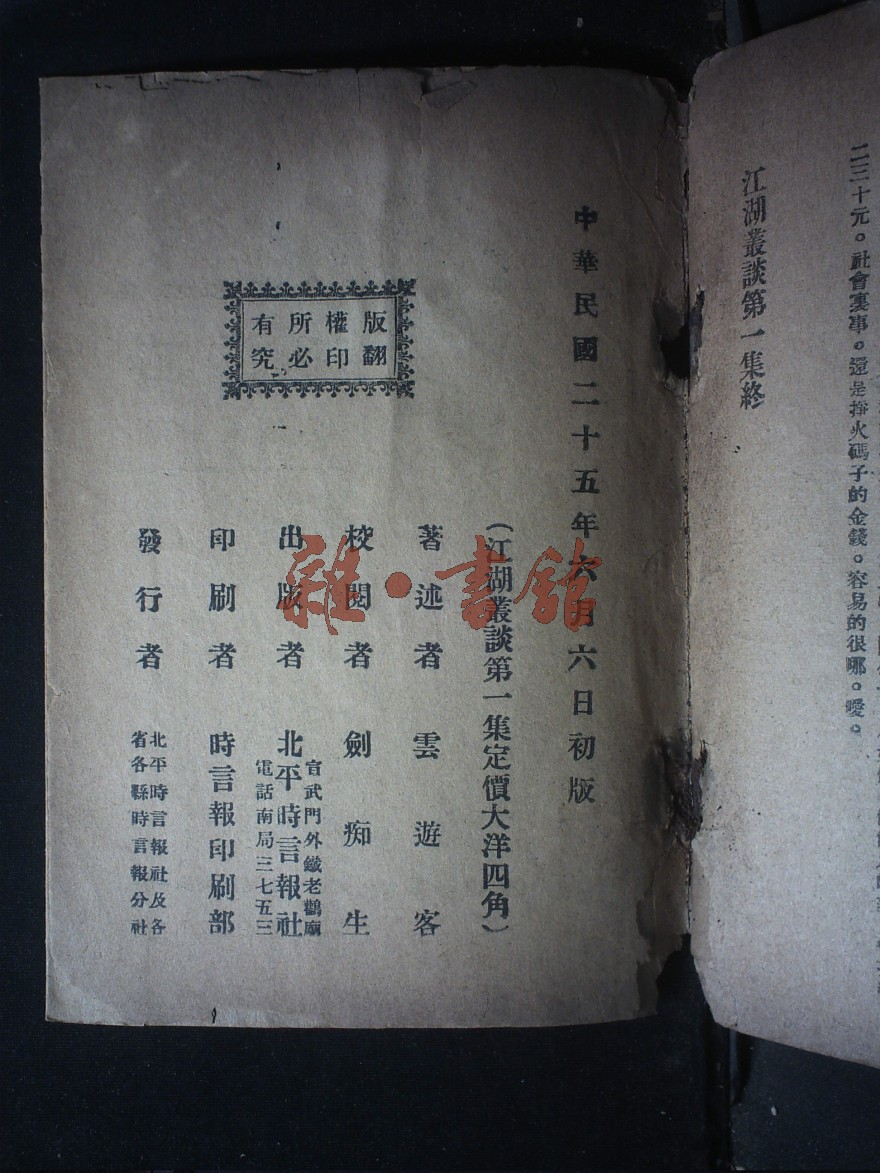 二三十元。社會裏事。還是摔火碼子的金錢。容易的很哪。噯。
江湖叢談第一集終
中華民國二十五年六月六日初版
(江湖叢談第一集定價大洋四角)
著述者 雲遊客
校閱者 劍痴生
出版者 北平時言報社
宣武門外鐵老鸛廟
電話南局三七五三
印刷者 時言報印刷部
發行者 北平時言報社及各
省各縣時言報分社
版權所有
翻印必究
雜·書館